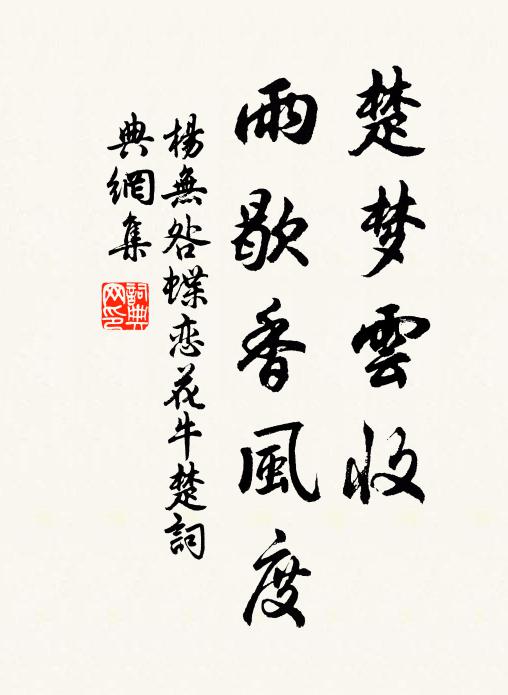 楚梦雲收
雨歇香風度
楊無咎蝶恋花牛楚詞
典網集
詞典网印